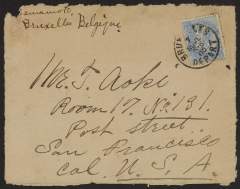 Bruxelles Belgique
Mr. T. Aoki
Room 17. No. 131.
Post street.
San Francisco
Cal. U. S. A.
DEPART